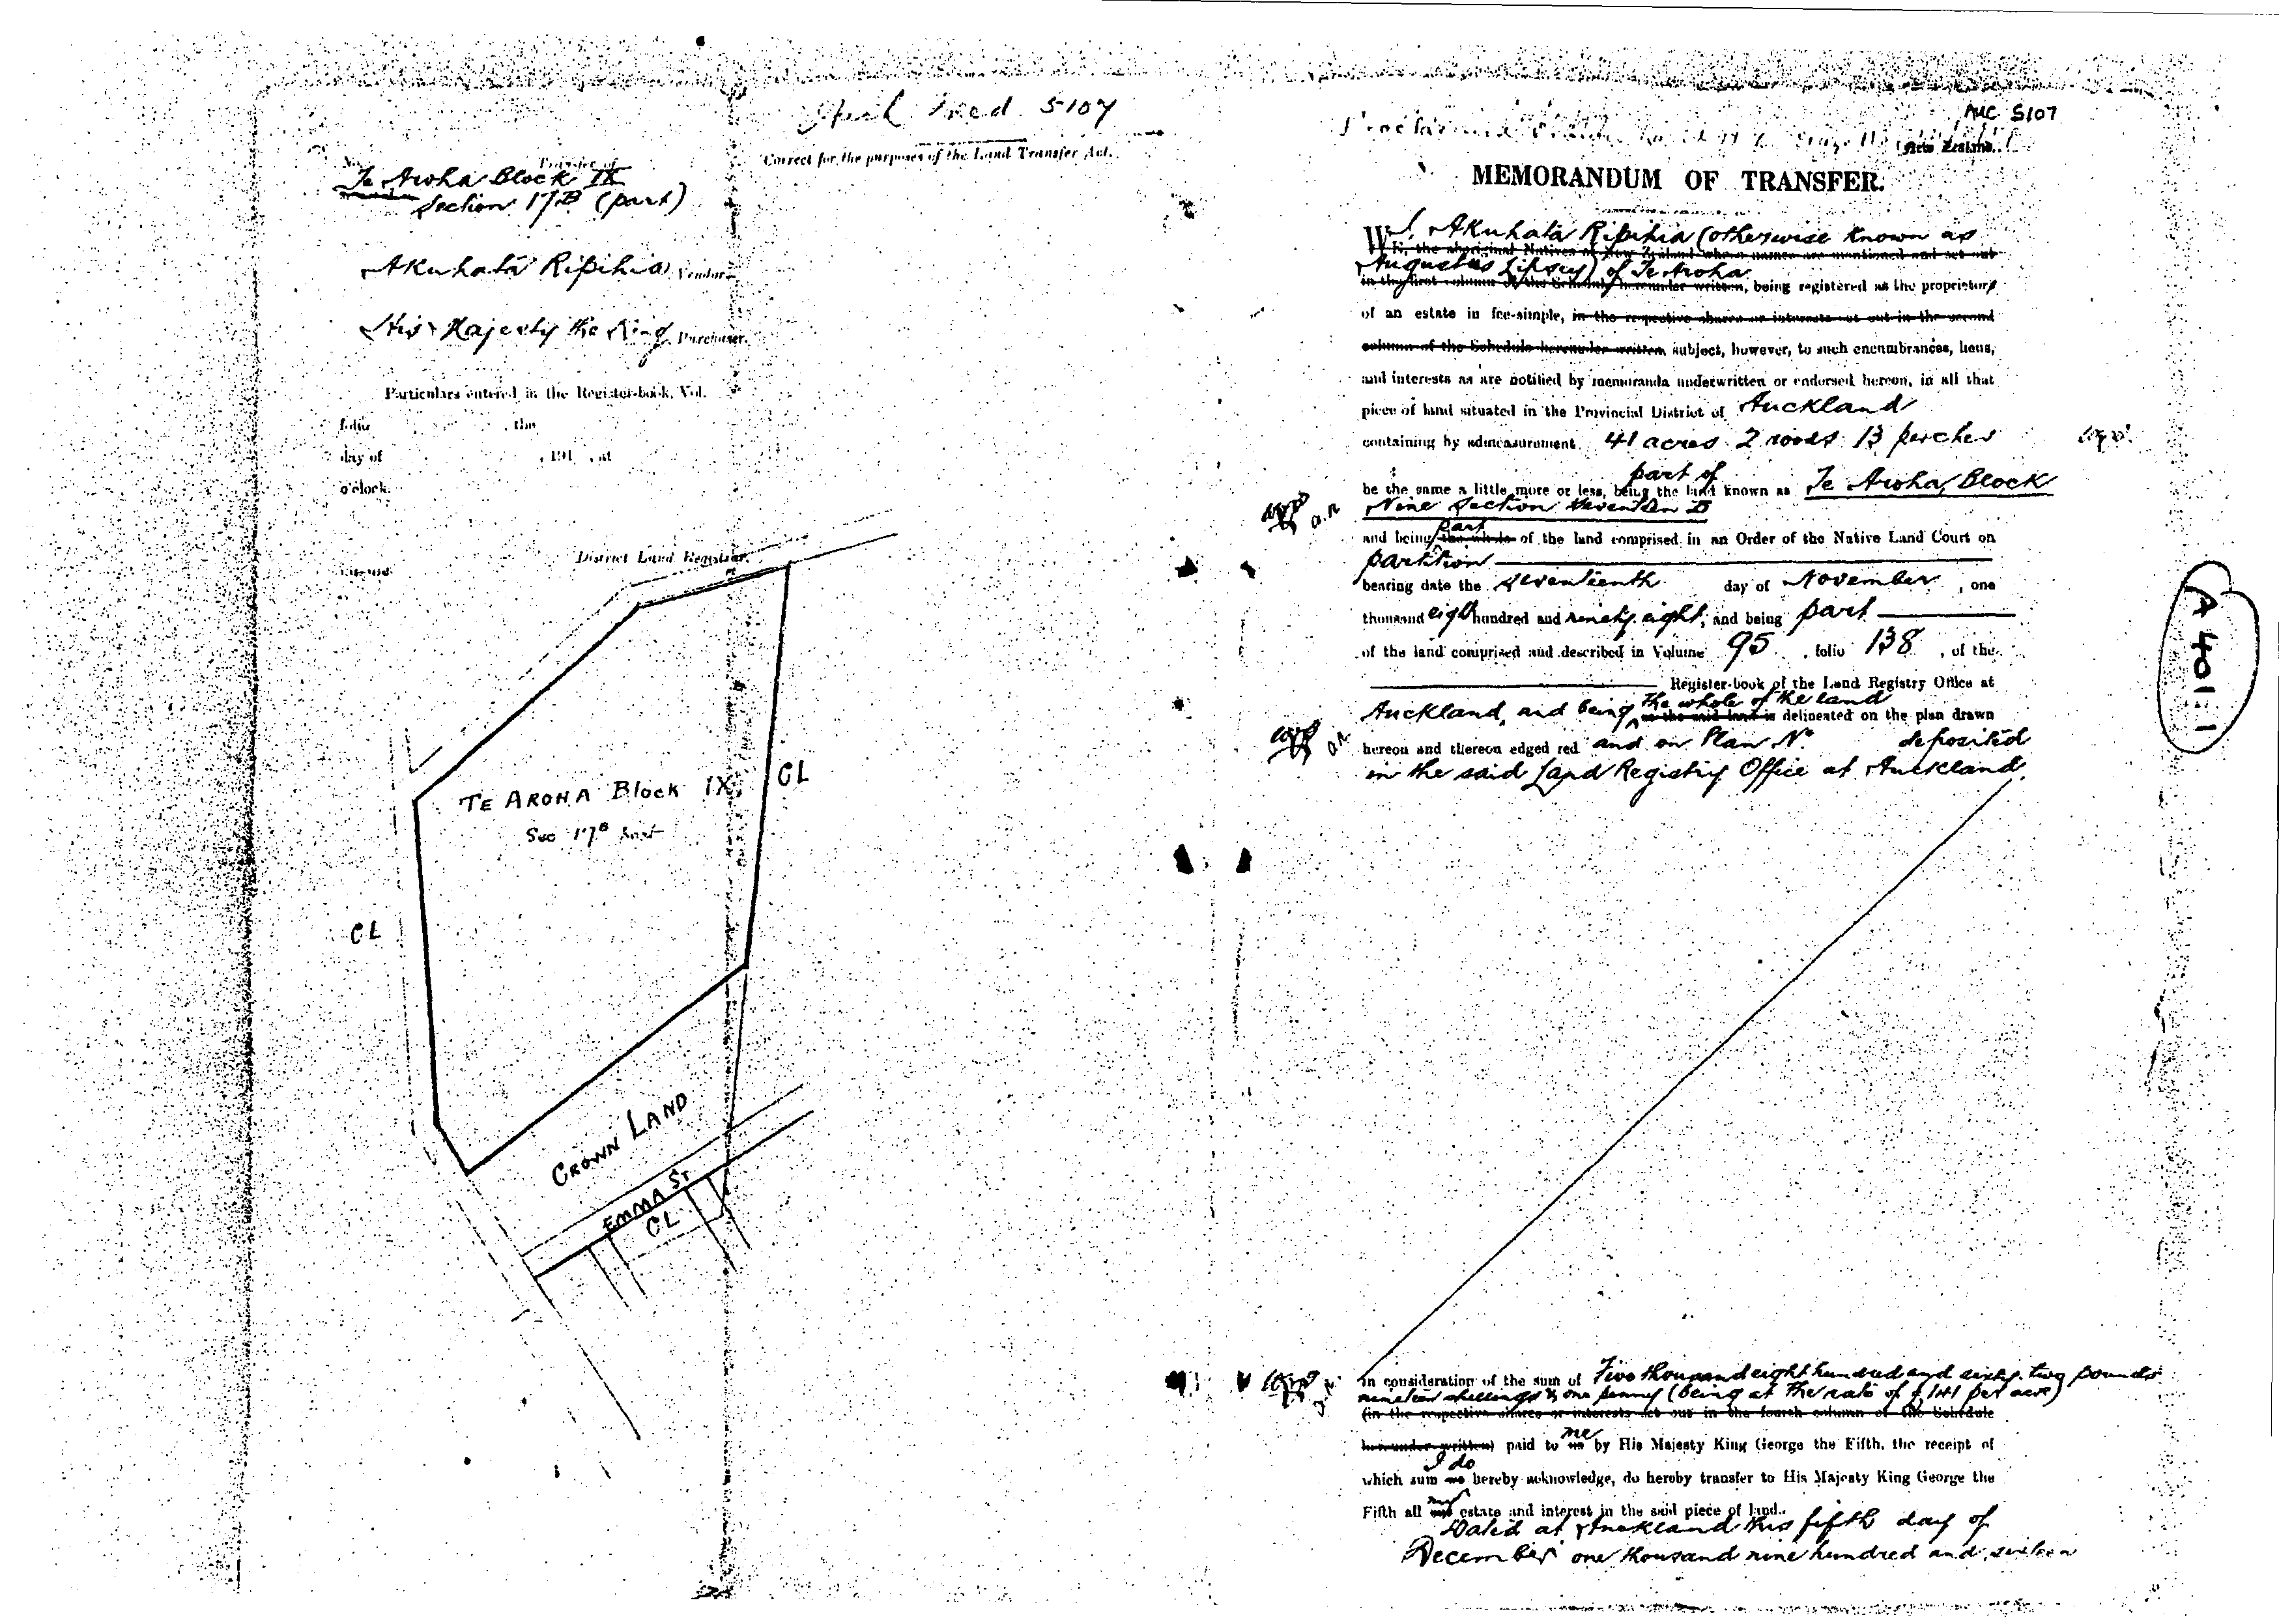 5107
No. Transfer of
Correct for the purposes of the Land Transfer Act.
Te Aroha Block IX
Section 17B (part)
Akuhata Ripihia Vendor.
His Majesty the King Purchaser.
Particulars entered in the Register-book, Vol.
folio , the
day of , 191 , at
o'clock.
District Land Registrar.
TE AROHA Block IX
Sec 17B
CL
CL
CROWN LAND
EMMA ST
CL
AUC 5107
New Zealand.
MEMORANDUM OF TRANSFER.
I, Akuhata Ripihia (otherwise known as
WE, the aboriginal Natives of New Zealand whose names are mentioned and set out
Augustus Lipsey) of Te Aroha
in the first column of the Schedule hereunder written, being registered as the proprietors
of an estate in fee-simple, in the respective shares or interests set out in the second
column of the Schedule hereunder written, subject, however, to such encumbrances, liens,
and interests as are notified by memoranda underwritten or endorsed hereon, in all that
piece of land situated in the Provincial District of Auckland
containing by admeasurement 41 acres 2 roods 13 perches
part of
be the same a little more or less, being the land known as Te Aroha Block
Nine Section Seventeen B
part
and being the whole of the land comprised in an Order of the Native Land Court on
partition
bearing date the seventeenth day of November, one
thousand eight hundred and ninety eight, and being part
of the land comprised and described in Volume 95, folio 138, of the
Register-book of the Land Registry Office at
the whole of the land
Auckland, and being as the said land is delineated on the plan drawn
hereon and thereon edged red and on Plan No. deposited
in the said Land Registry Office at Auckland.
A 401:1
In consideration of the sum of Five thousand eight hundred and sixty two pounds
nineteen shillings & one penny (being at the rate of £141 per acre)
(in the respective shares or interests set out in the fourth column of the Schedule
me
hereunder written) paid to us by His Majesty King George the Fifth, the receipt of
I do
which sum we hereby acknowledge, do hereby transfer to His Majesty King George the
my
Fifth all our estate and interest in the said piece of land.
Dated at Auckland this fifth day of
December one thousand nine hundred and sixteen